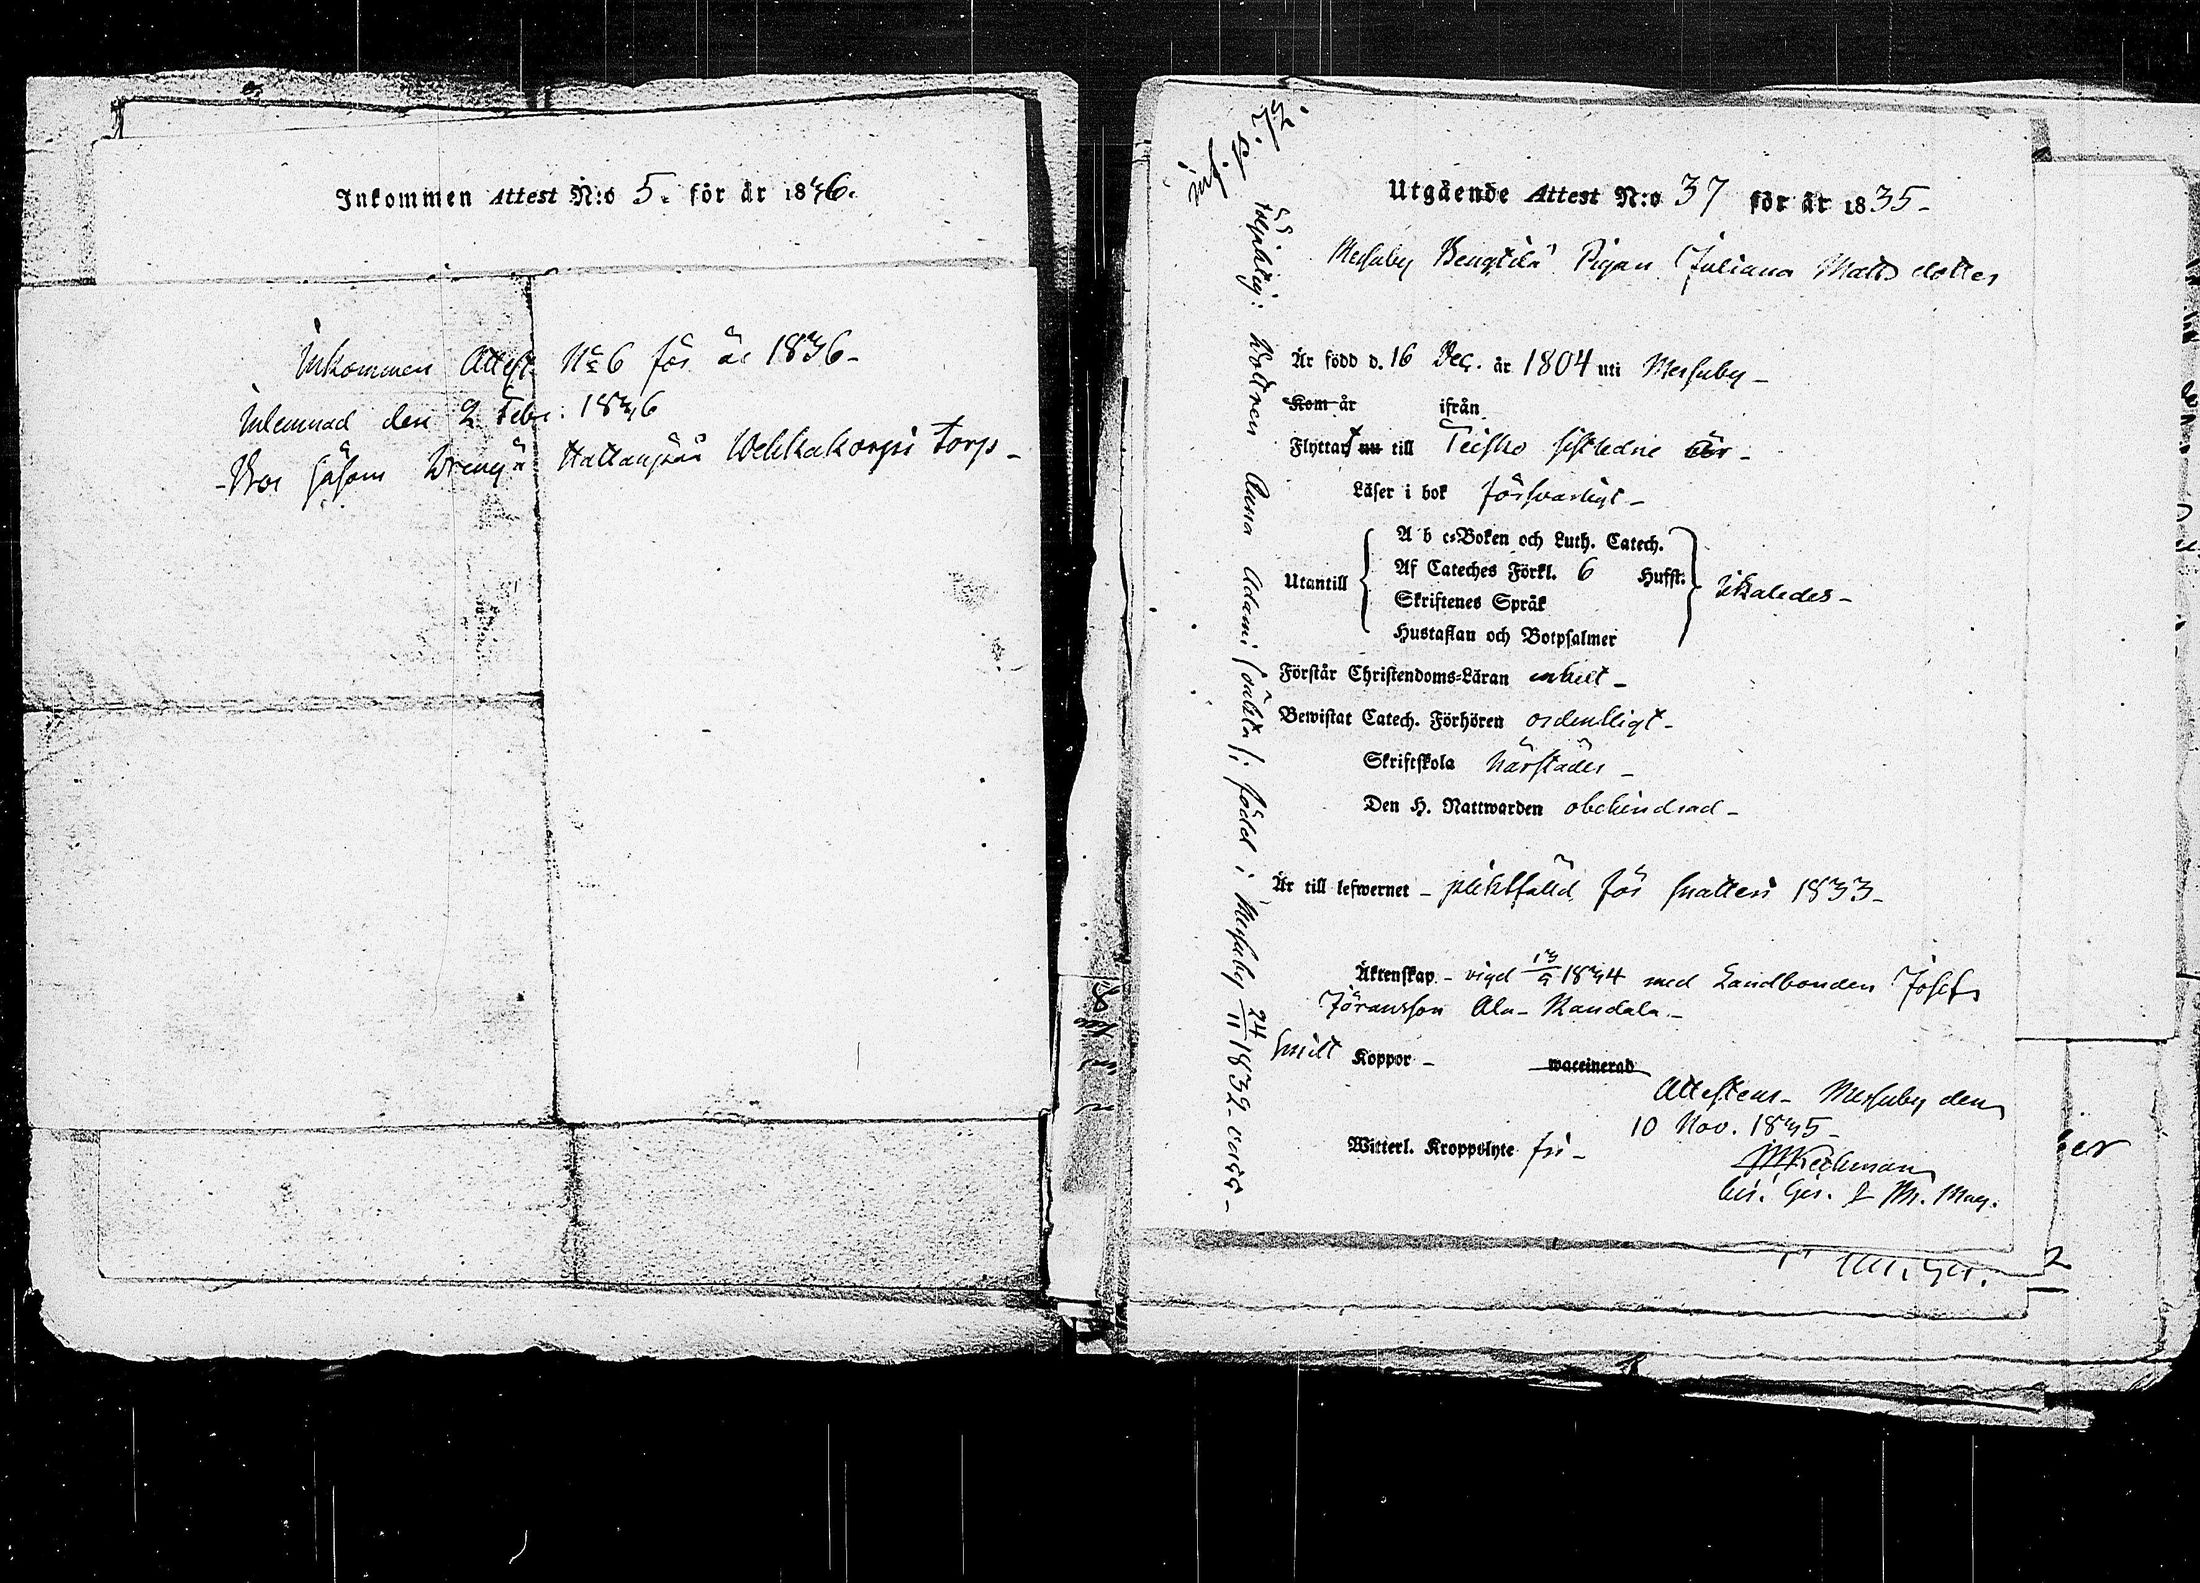 Inkommen Attest N:o 5. för år 1836.
Inkommen Attest No 6 för år 1836-
Inlemnad den 2 Febr. 1836
-Bor såsom Dreng å Wehkakorpi Torp-
Utgående Attest N:o 37 för år 1835-
Messuby Bengtilä Pigan Juliana Matts dotter
Är född d. 16 Dec. år 1804 uti Messuby-
Kom år ifrån
Flyttat nu till Teisko sistledne år-
Läser i bok försvarligt-
Utantill
A b c-Boken och Luth. Catech.
Af Cateches Förkl. 6 Hufst.
Skriftenes Språk
Hustaflan och Botpsalmer
likaledes-
Förstår Christendoms-Läran enkelt-
Bewistat Catech. Förhören ordentligt-
Skriftskola härstädes-
Den H. Nattwarden obehindrad-
Är till lefwernet - pliktfälld för 1833-
Äktenskap - vigd 13/9 1834 med Landbonden Josef
Jöransson Ala-Kandala-
Haft Koppor - waccinerad
Attesteras- Messuby den
10 Nov. 1835-
Witterl. Kroppslyte fri-
följaktig: Dottren Anna Adami (oäkta), född i Messuby 24/11 1832- vacc-